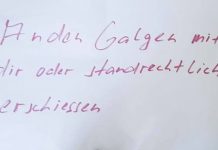 An den Galgen mit
dir oder standrechtlich
erschiessen